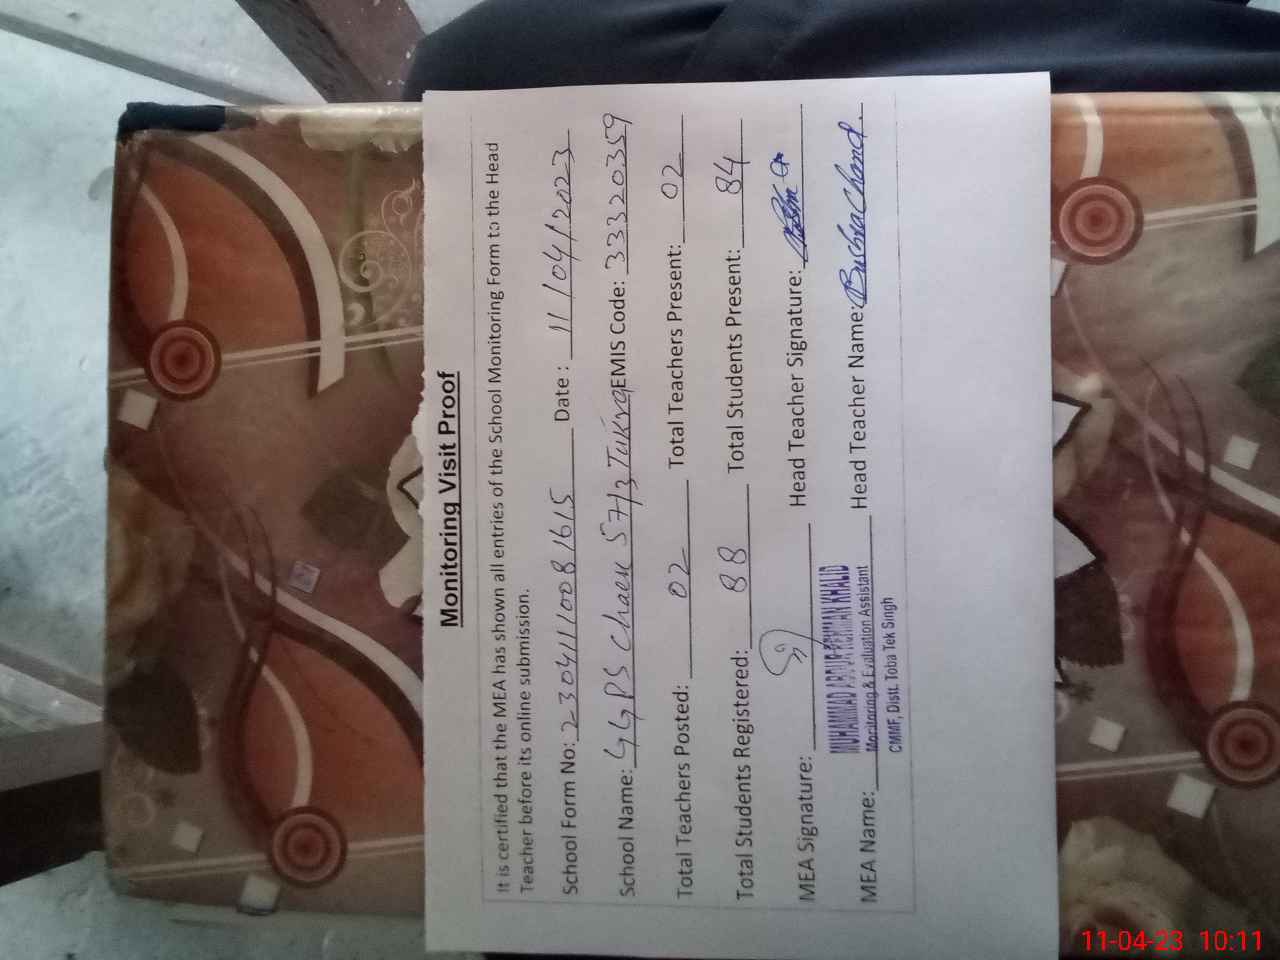 Monitoring Visit Proof
It is certified that the MEA has shown all entries of the School Monitoring Form to the Head
Teacher before its online submission.
School Form No: 2304111008 1615 Date : 11/04/2023
School Name: GGPS Chack 57/3 Tukra EMIS Code: 33320359
Total Teachers Posted: 02 Total Teachers Present: 02
Total Students Registered: 88 Total Students Present: 84
MEA Signature: Head Teacher Signature:
MEA Name: MUHAMMAD ABDUR REHMAN KHALID Head Teacher Name: Bushra Chand.
Monitoring & Evaluation Assistant
CMMF, Distt. Toba Tek Singh
11-04-23 10:11